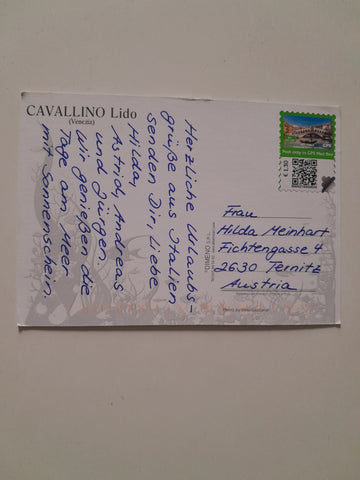 CAVALLINO Lido
(Venezia)
Herzliche Urlaubs-
grüße aus Italien
senden Dir, liebe
Hilda,
Astrid, Andreas
und Jürgen.
Wir genießen die
Tage am Meer
mit Sonnenschein.
Post only in GPS Mail Box
€ 1.30
Frau
Hilda Meinhart
Fichtengasse 4
2630 Ternitz
Austria